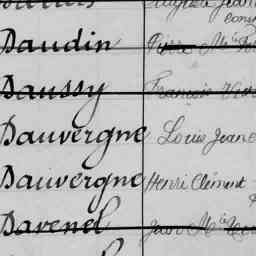 Daudin Pierre M
Daussy François
Dauvergne Louis Jean
Dauvergne Henri Clément
Davenel Jean M